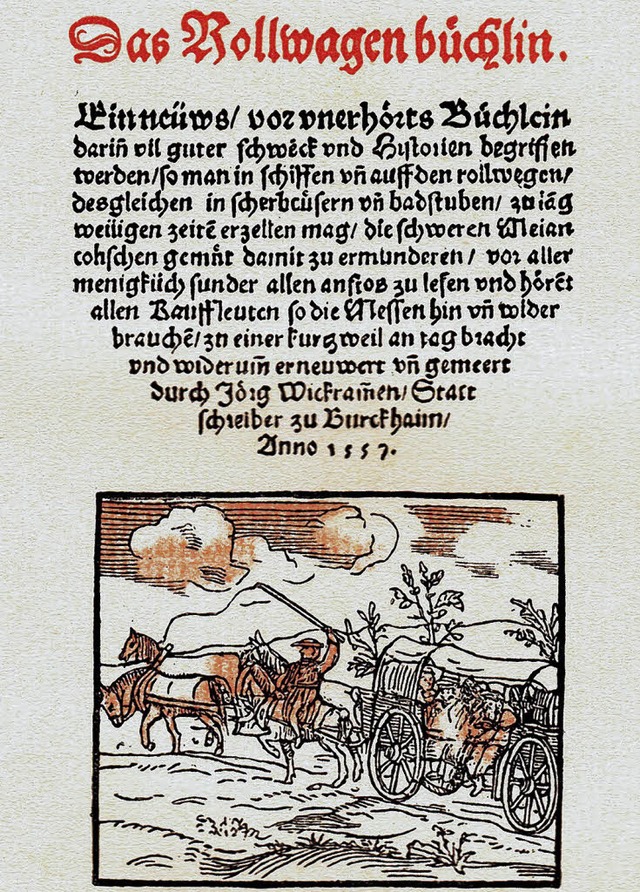 Das Rollwagen buͤchlin.
Ein neüws/ vor vnerhoͤrts Buͤchlein
dariñ vil guter schwēck vnd Hystorien begriffen
werden/so man in schiffen vñ auff den rollwegen/
desgleichen in scherheüsern vñ badstuben/ zu lāg
weiligen zeitē erzellen mag/ die schweren Melan
colischen gemuͤt damit zu ermunderen/ vor aller
menigklich sunder allen anstos zu lesen vnd hoͤrēt
allen Kauffleuten so die Messen hin vñ wider
brauchē/ zu einer kurtzweil an tag bracht
vnd widerum̃ erneuwert vñ gemeert
durch Joͤrg Wickram̃en/ Statt
schreiber zu Burckhaim/
Anno 1557.